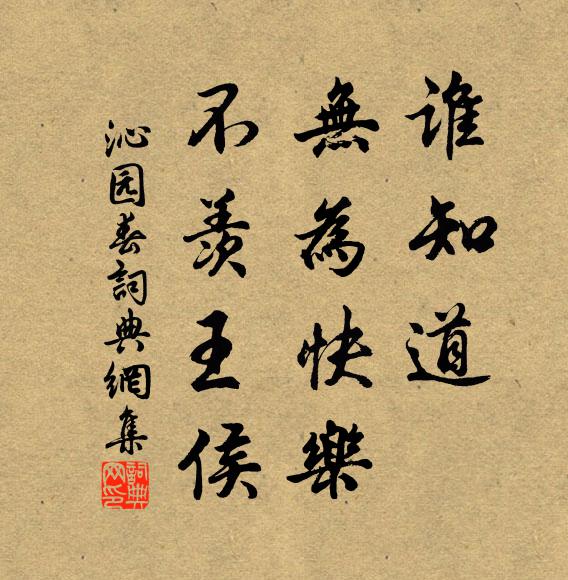 誰知道
無為快樂
不羨王侯
沁园春詞典網集
詞典
网印